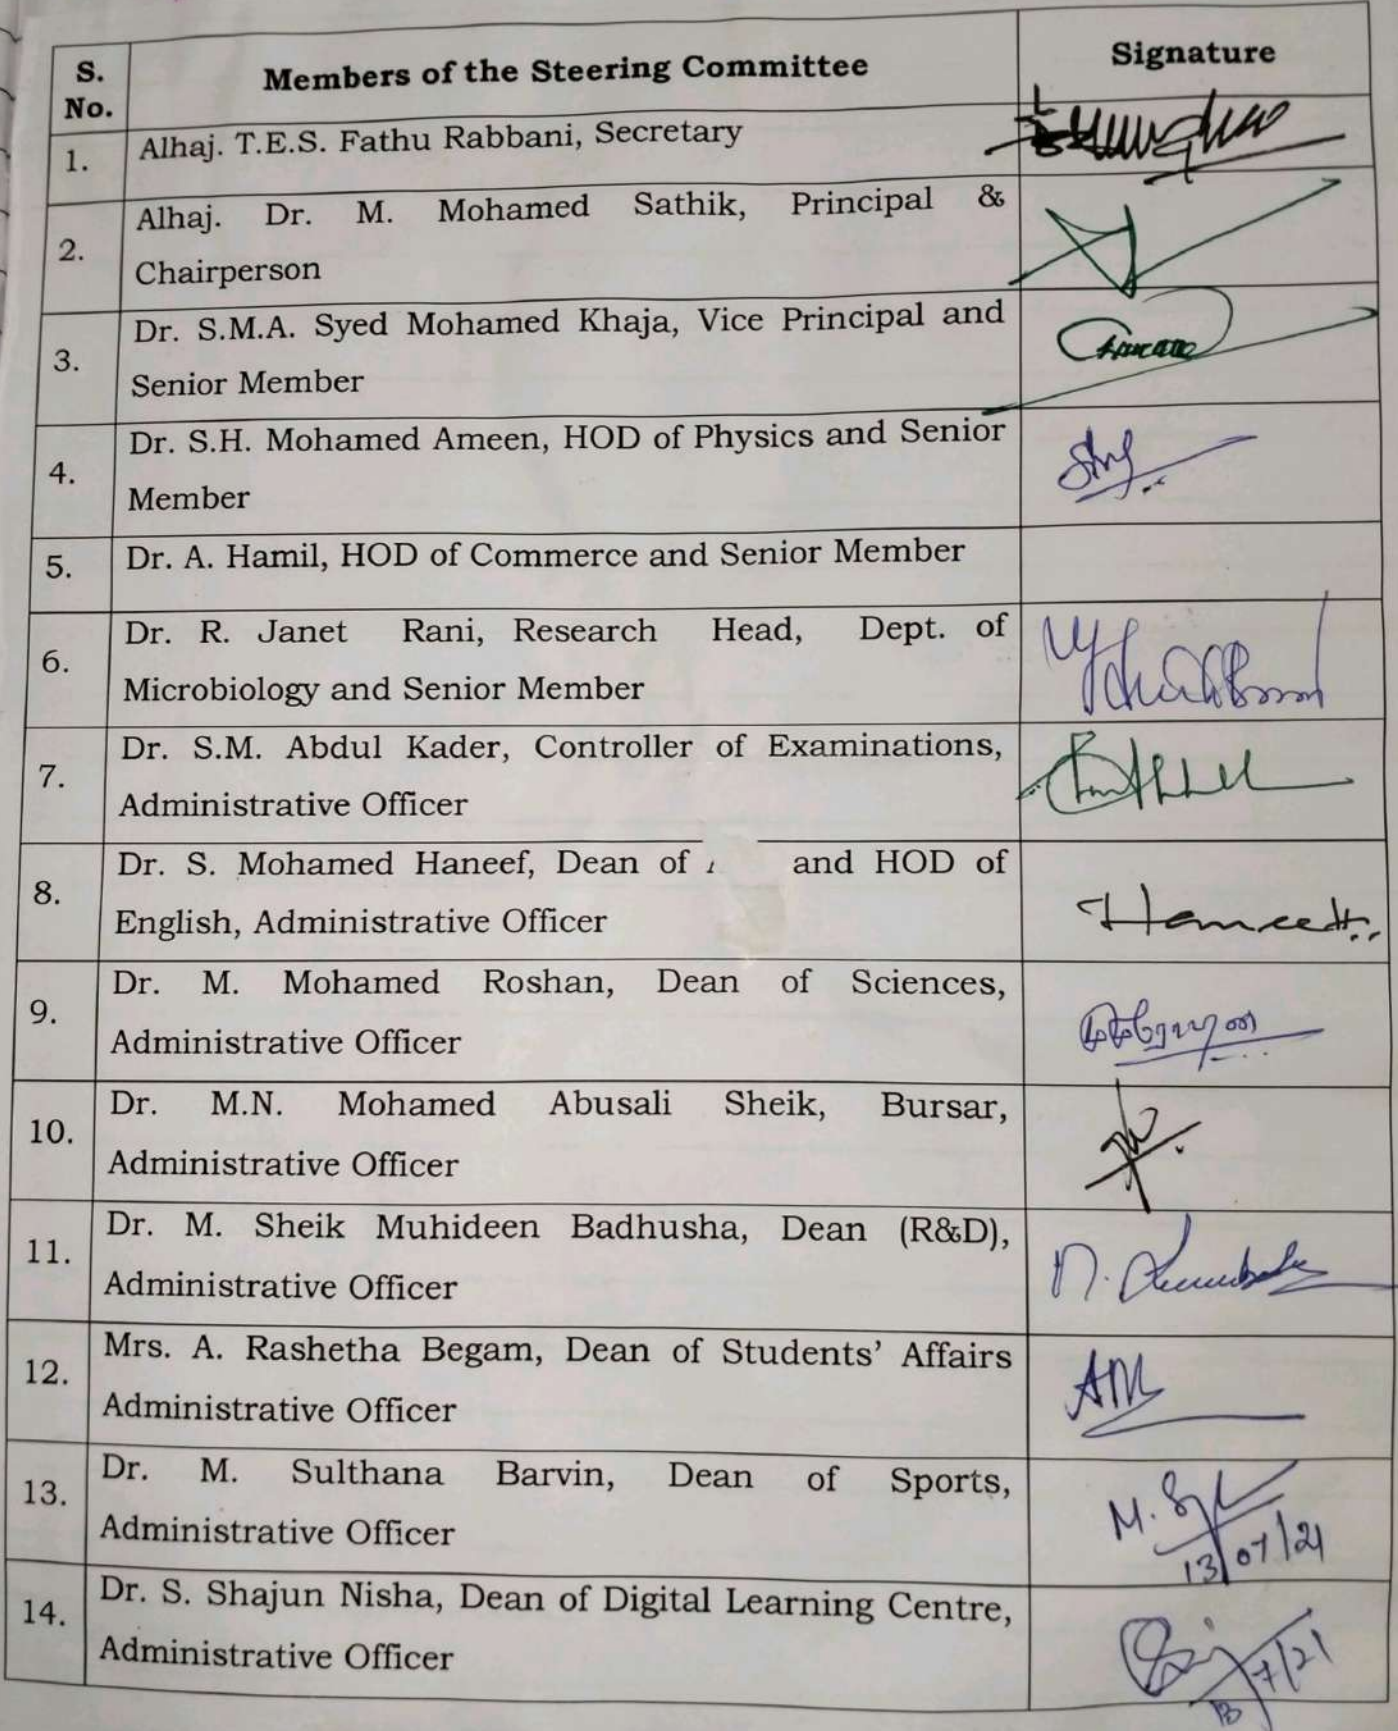 S.
No.
Members of the Steering Committee
Signature
1.
Alhaj. T.E.S. Fathu Rabbani, Secretary
2.
Alhaj. Dr. M. Mohamed Sathik, Principal &
Chairperson
3.
Dr. S.M.A. Syed Mohamed Khaja, Vice Principal and
Senior Member
4.
Dr. S.H. Mohamed Ameen, HOD of Physics and Senior
Member
5.
Dr. A. Hamil, HOD of Commerce and Senior Member
6.
Dr. R. Janet Rani, Research Head, Dept. of
Microbiology and Senior Member
7.
Dr. S.M. Abdul Kader, Controller of Examinations,
Administrative Officer
8.
Dr. S. Mohamed Haneef, Dean of and HOD of
English, Administrative Officer
9.
Dr. M. Mohamed Roshan, Dean of Sciences,
Administrative Officer
10.
Dr. M.N. Mohamed Abusali Sheik, Bursar,
Administrative Officer
11.
Dr. M. Sheik Muhideen Badhusha, Dean (R&D),
Administrative Officer
M.
12.
Mrs. A. Rashetha Begam, Dean of Students' Affairs
Administrative Officer
13.
Dr. M. Sulthana Barvin, Dean of Sports,
Administrative Officer
M.
13/07/21
14.
Dr. S. Shajun Nisha, Dean of Digital Learning Centre,
Administrative Officer
13/7/21